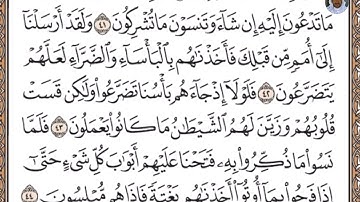 مَا تَدْعُونَ إِلَيْهِ إِن شَآءَ وَتَنسَوْنَ مَا تُشْرِكُونَ ۝٤١ وَلَقَدْ أَرْسَلْنَآ
إِلَىٰٓ أُمَمٍ مِّن قَبْلِكَ فَأَخَذْنَٰهُم بِٱلْبَأْسَآءِ وَٱلضَّرَّآءِ لَعَلَّهُمْ
يَتَضَرَّعُونَ ۝٤٢ فَلَوْلَآ إِذْ جَآءَهُم بَأْسُنَا تَضَرَّعُوا۟ وَلَٰكِن قَسَتْ
قُلُوبُهُمْ وَزَيَّنَ لَهُمُ ٱلشَّيْطَٰنُ مَا كَانُوا۟ يَعْمَلُونَ ۝٤٣ فَلَمَّا
نَسُوا۟ مَا ذُكِّرُوا۟ بِهِۦ فَتَحْنَا عَلَيْهِمْ أَبْوَٰبَ كُلِّ شَىْءٍ حَتَّىٰٓ
إِذَا فَرِحُوا۟ بِمَآ أُوتُوٓا۟ أَخَذْنَٰهُم بَغْتَةً فَإِذَا هُم مُّبْلِسُونَ ۝٤٤